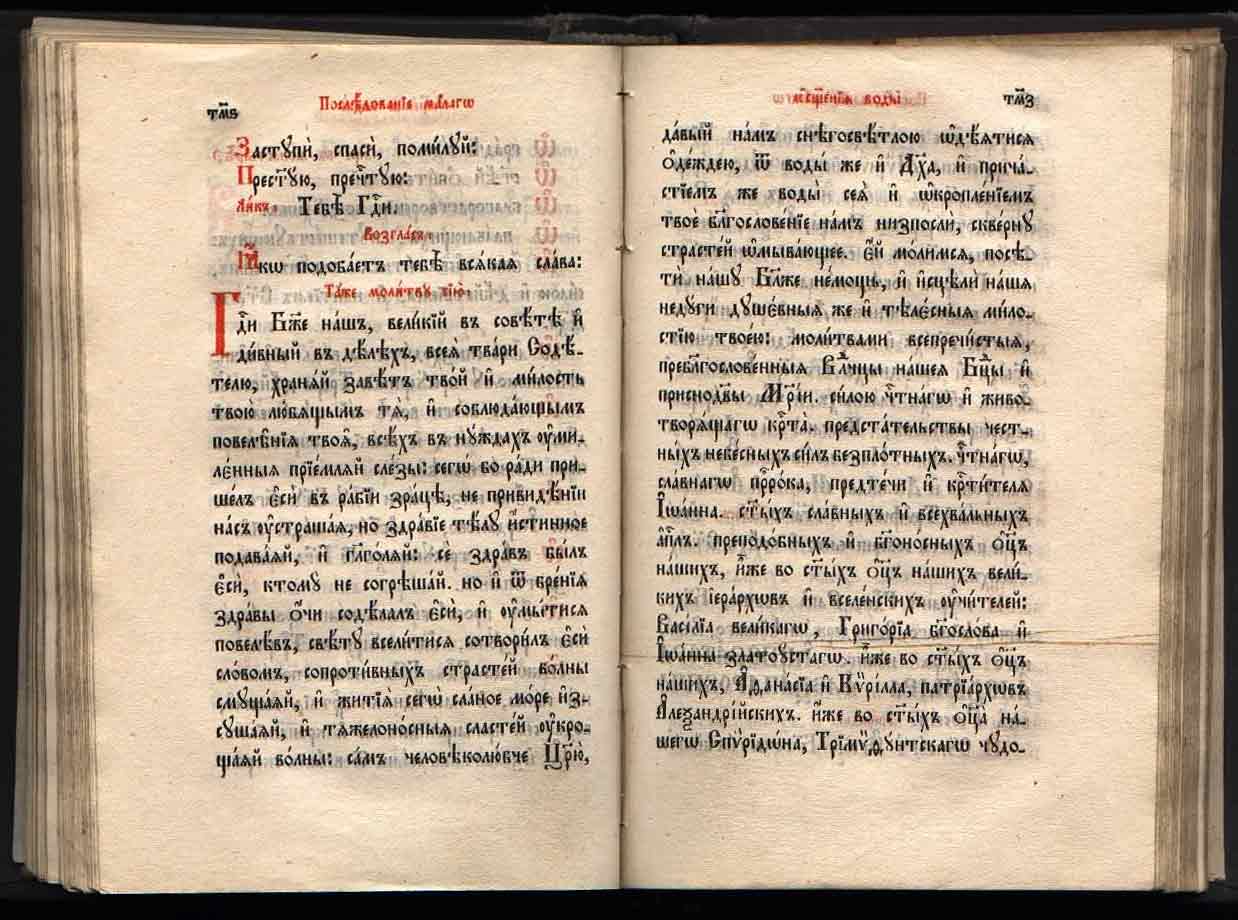 тм҃ѕ
Послѣ́дованїе ма́лагѡ
Заступѝ, спасѝ, поми́луй:
Прест҃ꙋю, пречⷭ҇тꙋю:
Ли́къ. Тебѣ̀ Гдⷭ҇и.
Возгла́съ.
Ꙗ҆́кѡ подоба́етъ тебѣ̀ всѧ́каѧ сла́ва:
Та́же моли́тву сїю̀.
Гдⷭ҇и Бж҃е на́шъ, вели́кїй въ совѣ́тѣ и҆
ди́вный въ дѣ́лѣхъ, всеѧ̀ тва́ри Содѣ́-
телю, хранѧ́й завѣ́тъ тво́й и҆ ми́лость
твою̀ лю́бѧщымъ тѧ̀, и҆ соблюда́ющымъ
повелѣ̑нїѧ твоѧ̑, всѣ́хъ въ нꙋ́ждахъ ᲂу҆миле́-
нныѧ прїе́млѧй сле́зы: сегѡ̀ бо ра́ди при-
ше́лъ є҆сѝ въ ра́бїи зра́цѣ, не привидѣ́нїи
на́съ ᲂу҆страша́ѧ, но здра́вїе тѣ́лꙋ и҆́стинное
подава́ѧй, и҆ гл҃го́лѧй: сѐ здра́въ бы́лъ
є҆сѝ, ктомꙋ̀ не согрѣша́й. но и҆ ѿ бре́нїѧ
здра́вы ѻ҆́чи содѣ́лалъ є҆сѝ, и҆ ᲂу҆мы́тисѧ
повелѣ́въ, свѣ́тꙋ всели́тисѧ сотвори́лъ є҆сѝ
сло́вомъ, сопроти́вныхъ страсте́й во́лны
смꙋща́ѧй, и҆ житїѧ̀ сегѡ̀ сла́ное мо́ре и҆з-
сꙋша́ѧй, и҆ тѧжелоно́сныѧ сласте́й ᲂу҆кро-
ща́ѧй во́лны: са́мъ человѣколю́бче Цр҃ю̀,
ѡ҆сщ҃е́нїѧ воды̀
тм҃з
да́вый на́мъ снѣгосвѣ́тлою ѡ҆дѣ́ѧтисѧ
ѻ҆де́ждею, ѿ воды́ же и҆ Дх҃а, и҆ прича́-
стїемъ же воды̀ сеѧ̀ и҆ ѡ҆кропле́нїемъ
твоѐ бл҃гослове́нїе на́мъ низпослѝ, скве́рнꙋ
страсте́й ѡ҆мыва́ющее. Е҆́й мо́лимсѧ, посѣ-
тѝ на́шꙋ Бж҃е не́мощь, и҆ и҆сцѣлѝ на́шѧ
недꙋ́ги дꙋше́вныѧ же и҆ тѣлє́сныѧ ми́ло-
стїю твое́ю: моли́твами всепречи́стыѧ,
пребл҃гослове́нныѧ Влⷣчцы на́шеѧ Бцⷣы и҆
приснодв҃ы Мр҃і́и. си́лою чⷭ҇тна́гѡ и҆ живо-
творѧ́щагѡ крⷭ҇та̀. предста́тельствы чест-
ны́хъ небе́сныхъ си́лъ безпло́тныхъ. чⷭ҇тна́гѡ,
сла́внагѡ прⷪ҇ро́ка, предте́чи и҆ крⷭ҇ти́телѧ
І҆ѡа́нна. ст҃ы́хъ сла́вныхъ и҆ всехва́льныхъ
а҆пⷭ҇лъ. преподо́бныхъ и҆ бг҃оно́сныхъ ѻ҆ц҃ъ
на́шихъ, и҆̀же во ст҃ы́хъ ѻ҆ц҃ъ на́шихъ вели́-
кихъ і҆ера́рхѡвъ и҆ вселе́нскихъ ᲂу҆чи́телей:
Васі́лїа вели́кагѡ, Григо́рїа бг҃осло́ва и҆
І҆ѡа́нна златоꙋ́стагѡ. и҆̀же во ст҃ы́хъ ѻ҆ц҃ъ
на́шихъ, А҆ѳана́сїа и҆ Кѷрі́лла, патрїа́рхѡвъ
А҆леѯандрі́йскихъ. и҆́же во ст҃ы́хъ ѻ҆ц҃а̀ на́-
шегѡ Спѷрїдѡ́на, Трїмѷфꙋ́нтскагѡ чꙋдо-